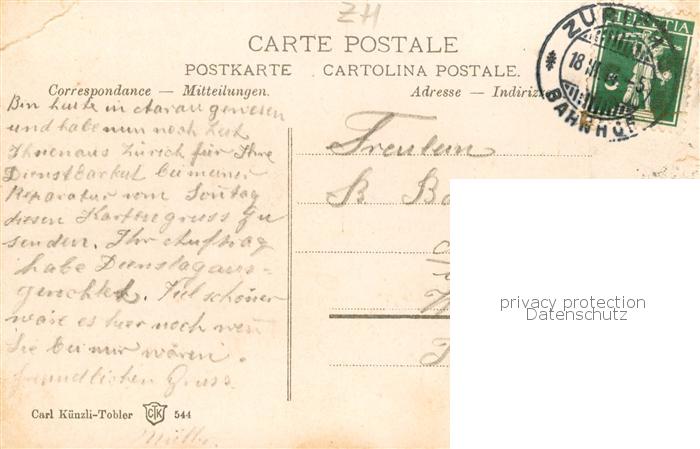 ZH
CARTE POSTALE
POSTKARTE CARTOLINA POSTALE.
Correspondance — Mitteilungen.
Adresse — Indirizz
ZÜRICH
18
BAHNHOF
HELVETIA
5
Bin heute in Aarau gewesen
und habe nun noch Zeit
Ihnen aus Zürich für Ihre
Dienstbarkeit bei meiner
Reparatur vom Sonntag
diesen Kartengruss zu
senden. Ihr Auftrag
habe Dienstag aus-
gerichtet. Viel schöner
wäre es hier noch wen̄
Sie bei mir wären.
freundlichen Gruss
Freulein
B. Ba
Carl Künzli-Tobler CTK 544
privacy protection
Datenschutz